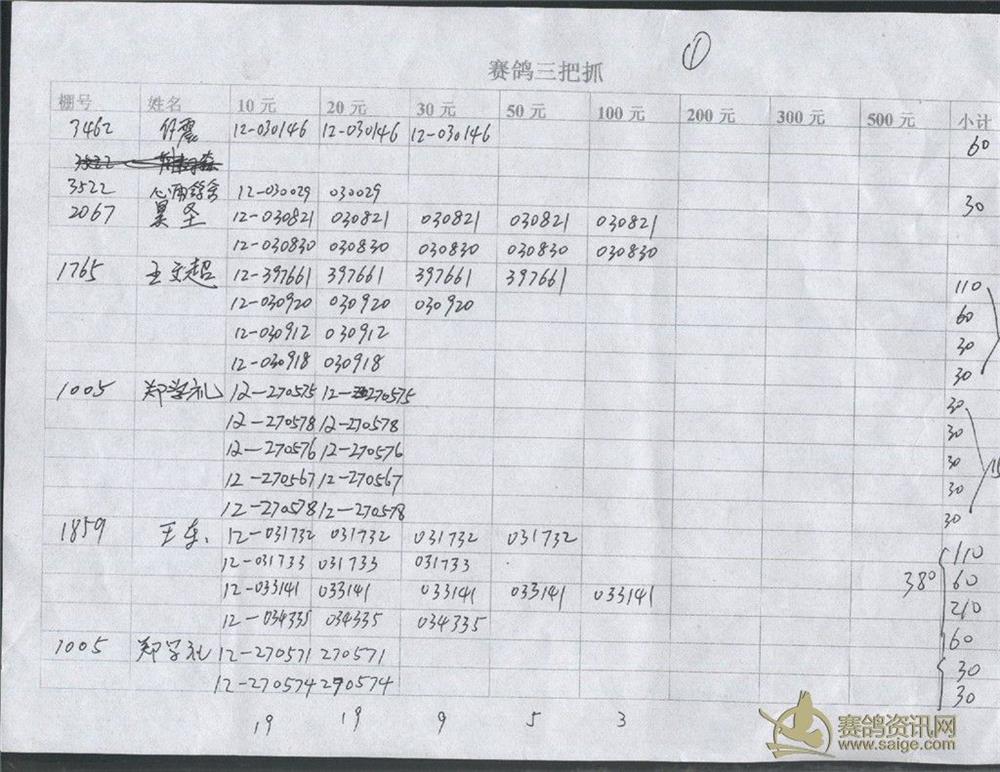 ①
赛鸽三把抓
棚号 姓名 10 元 20 元 30 元 50 元 100 元 200 元 300 元 500 元 小计
3462 舒震 12-030146 12-030146 12-030146 60
3522 心雨鸽舍 12-030029 030029 30
2067 昊圣 12-030821 030821 030821 030821 030821
12-030830 030830 030830 030830 030830
1765 王文超 12-397661 397661 397661 397661 110
12-030920 030920 030920 60
12-030912 030912 30
12-030918 030918 30
1005 郑学礼 12-270575 12-270575 30
12-270578 12-270578 30
12-270576 12-270576 30
12-270567 12-270567 30
12-270578 12-270578 30
1859 王东 12-031732 031732 031732 031732 110
12-031733 031733 031733 380 60
12-033141 033141 033141 033141 033141 210
12-034335 034335 034335 60
1005 郑学礼 12-270571 270571 30
12-270574 270574 30
19 19 9 5 3
赛鸽资讯网
www.saige.com